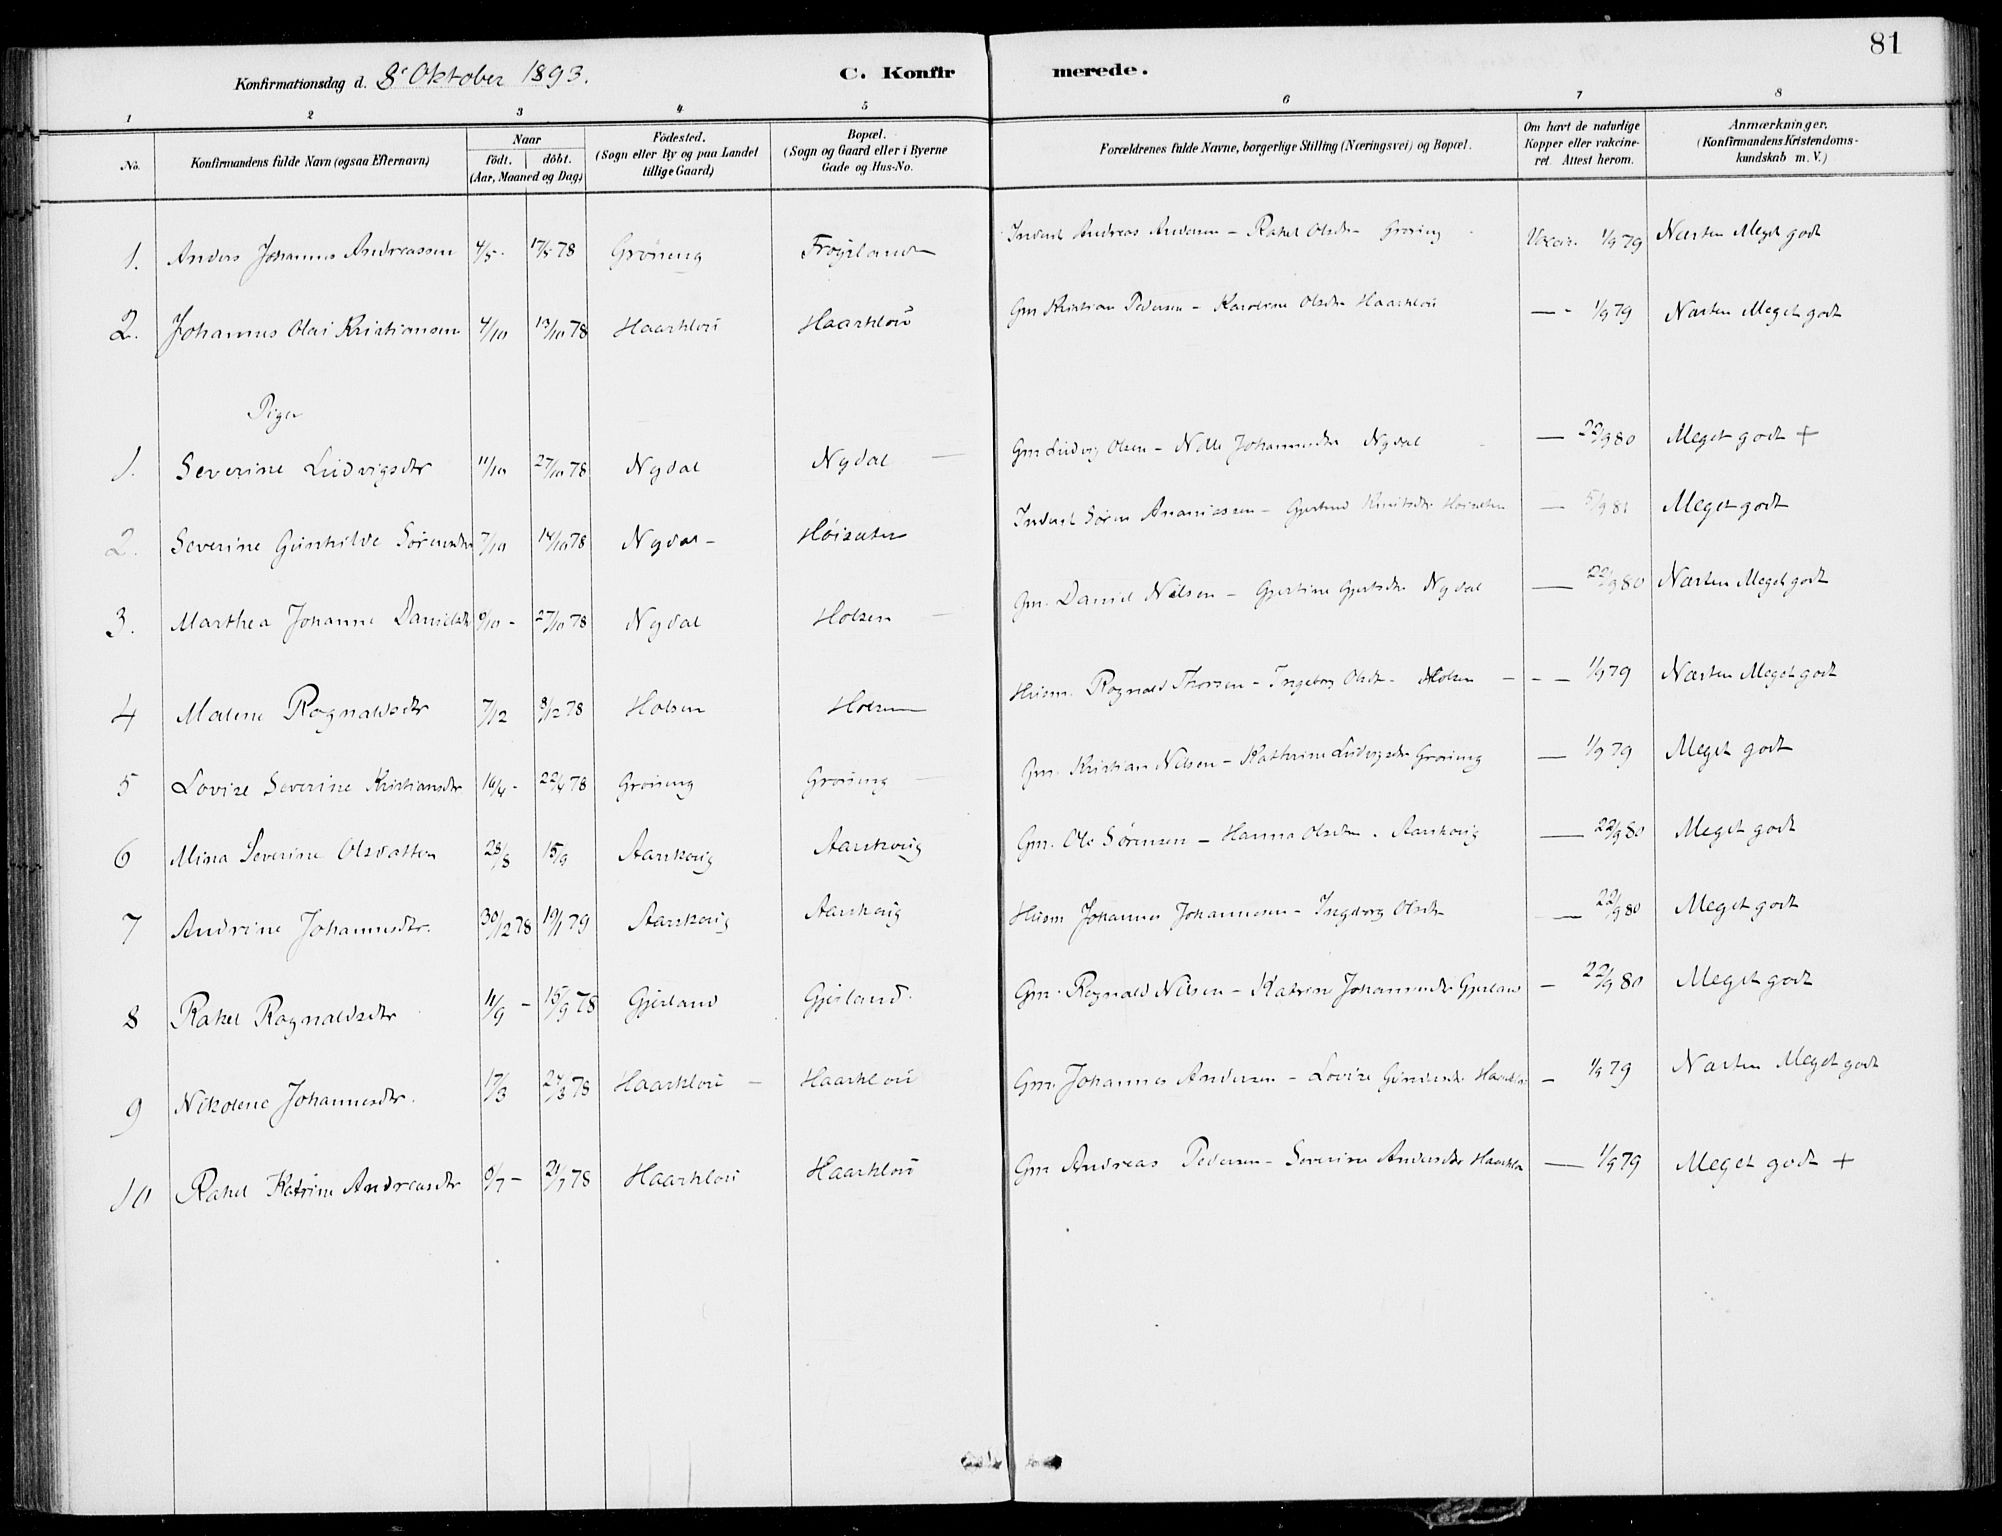 81
Konfirmationsdag d. 8' Oktober 1893. C. Konfirmerede.
1 2 3 4 5 6 7 8
No. Konfirmandens fulde Navn (ogsaa Efternavn) Naar født. døbt. (Aar, Maaned og Dag) Fødested. (Sogn eller By og paa Landet tillige Gaard) Bopæl. (Sogn og Gaard eller i Byerne Gade og Hus-No. Forældrenes fulde Navne, borgerlige Stilling (Næringsvei) og Bopæl. Om havt de naturlige Kopper eller vakcineret. Attest herom. Anmærkninger. (Konfirmandens Kristendomskundskab m. V.)
1. Anders Johannes Andreassen 4/5 - 17/5 78 Grøneng Frøysland Andreas Andersen - Rakel Olsdr Grøneng Vaccin. 1/9 79 Næsten Meget godt
2. Johannes Olai Kristiansen 4/10 13/10 78 Haarklou Haarklou Gm Kristian Pedersen - Karoline Olsdr Haarklou — - 1/9 79 Næsten Meget godt
Piger
1. Severine Ludvigsdtr 11/10 27/10 78 Nydal Nydal — Gm Ludvig Olsen - Johannesdtr Nydal — 22/9 80 Meget godt +
2. Severine Gunhilde Sørensdtr 7/10 14/10 78 Nydal - Høisæter Søren Ananiassen - Gjertrud Knutsdtr Høisæter — 5/9 81 Meget godt
3. Marthea Johanne Danielsdtr 9/10 - 27/10 78 Nydal Holsen — Gm. Daniel Nilsen - Gjertine Gjertsdtr Nydal — 22/9 80 Næsten Meget godt
4 Malene Ragnaldsdtr 7/12 8/12 78 Holsen Holsen Husm. Ragnald Thorsen - Ingeborg Olsdr - Holsen - - — 1/9 79 Næsten Meget godt
5 Lovise Severine Kristiansdtr 16/4 - 22/4 78 Grøneng Grøneng — Gm. Kristian Nilsen - Kathrine Ludvigsdtr Grøneng — 1/9 79 Meget godt
6 Mina Severine Olsdatter 28/8 15/9 Aarskoug Aarskoug Gm. Ole Sørensen - Hanna Olsdtr. Aarskoug — 22/9 80 Meget godt
7 Andrine Johannesdtr. 30/12 78 19/1 79 Aarskoug Aarskoug Husm Johannes Johannesen - Ingeborg Olsdtr — 22/9 80 Meget godt
8 Rakel Ragnaldsdtr 11/9 - 15/9 78 Gjerland Gjerland. Gm. Ragnald Nilsen - Katrine Johannesdtr Gjerland — 22/9 80 Meget godt
9 Nikoline Johannesdtr. 17/3 24/3 78 Haarklou — Haarklou Gm. Johannes Andersen - Lovise Gundersdtr Haarklou — 1/9 79 Næsten Meget godt
10 Rakel Katrine Andreasdtr 9/7 - 21/7 78 Haarklou Haarklou Gm Andreas Pedersen - Severine Andersdtr Haarklou — 1/9 79 Meget godt +